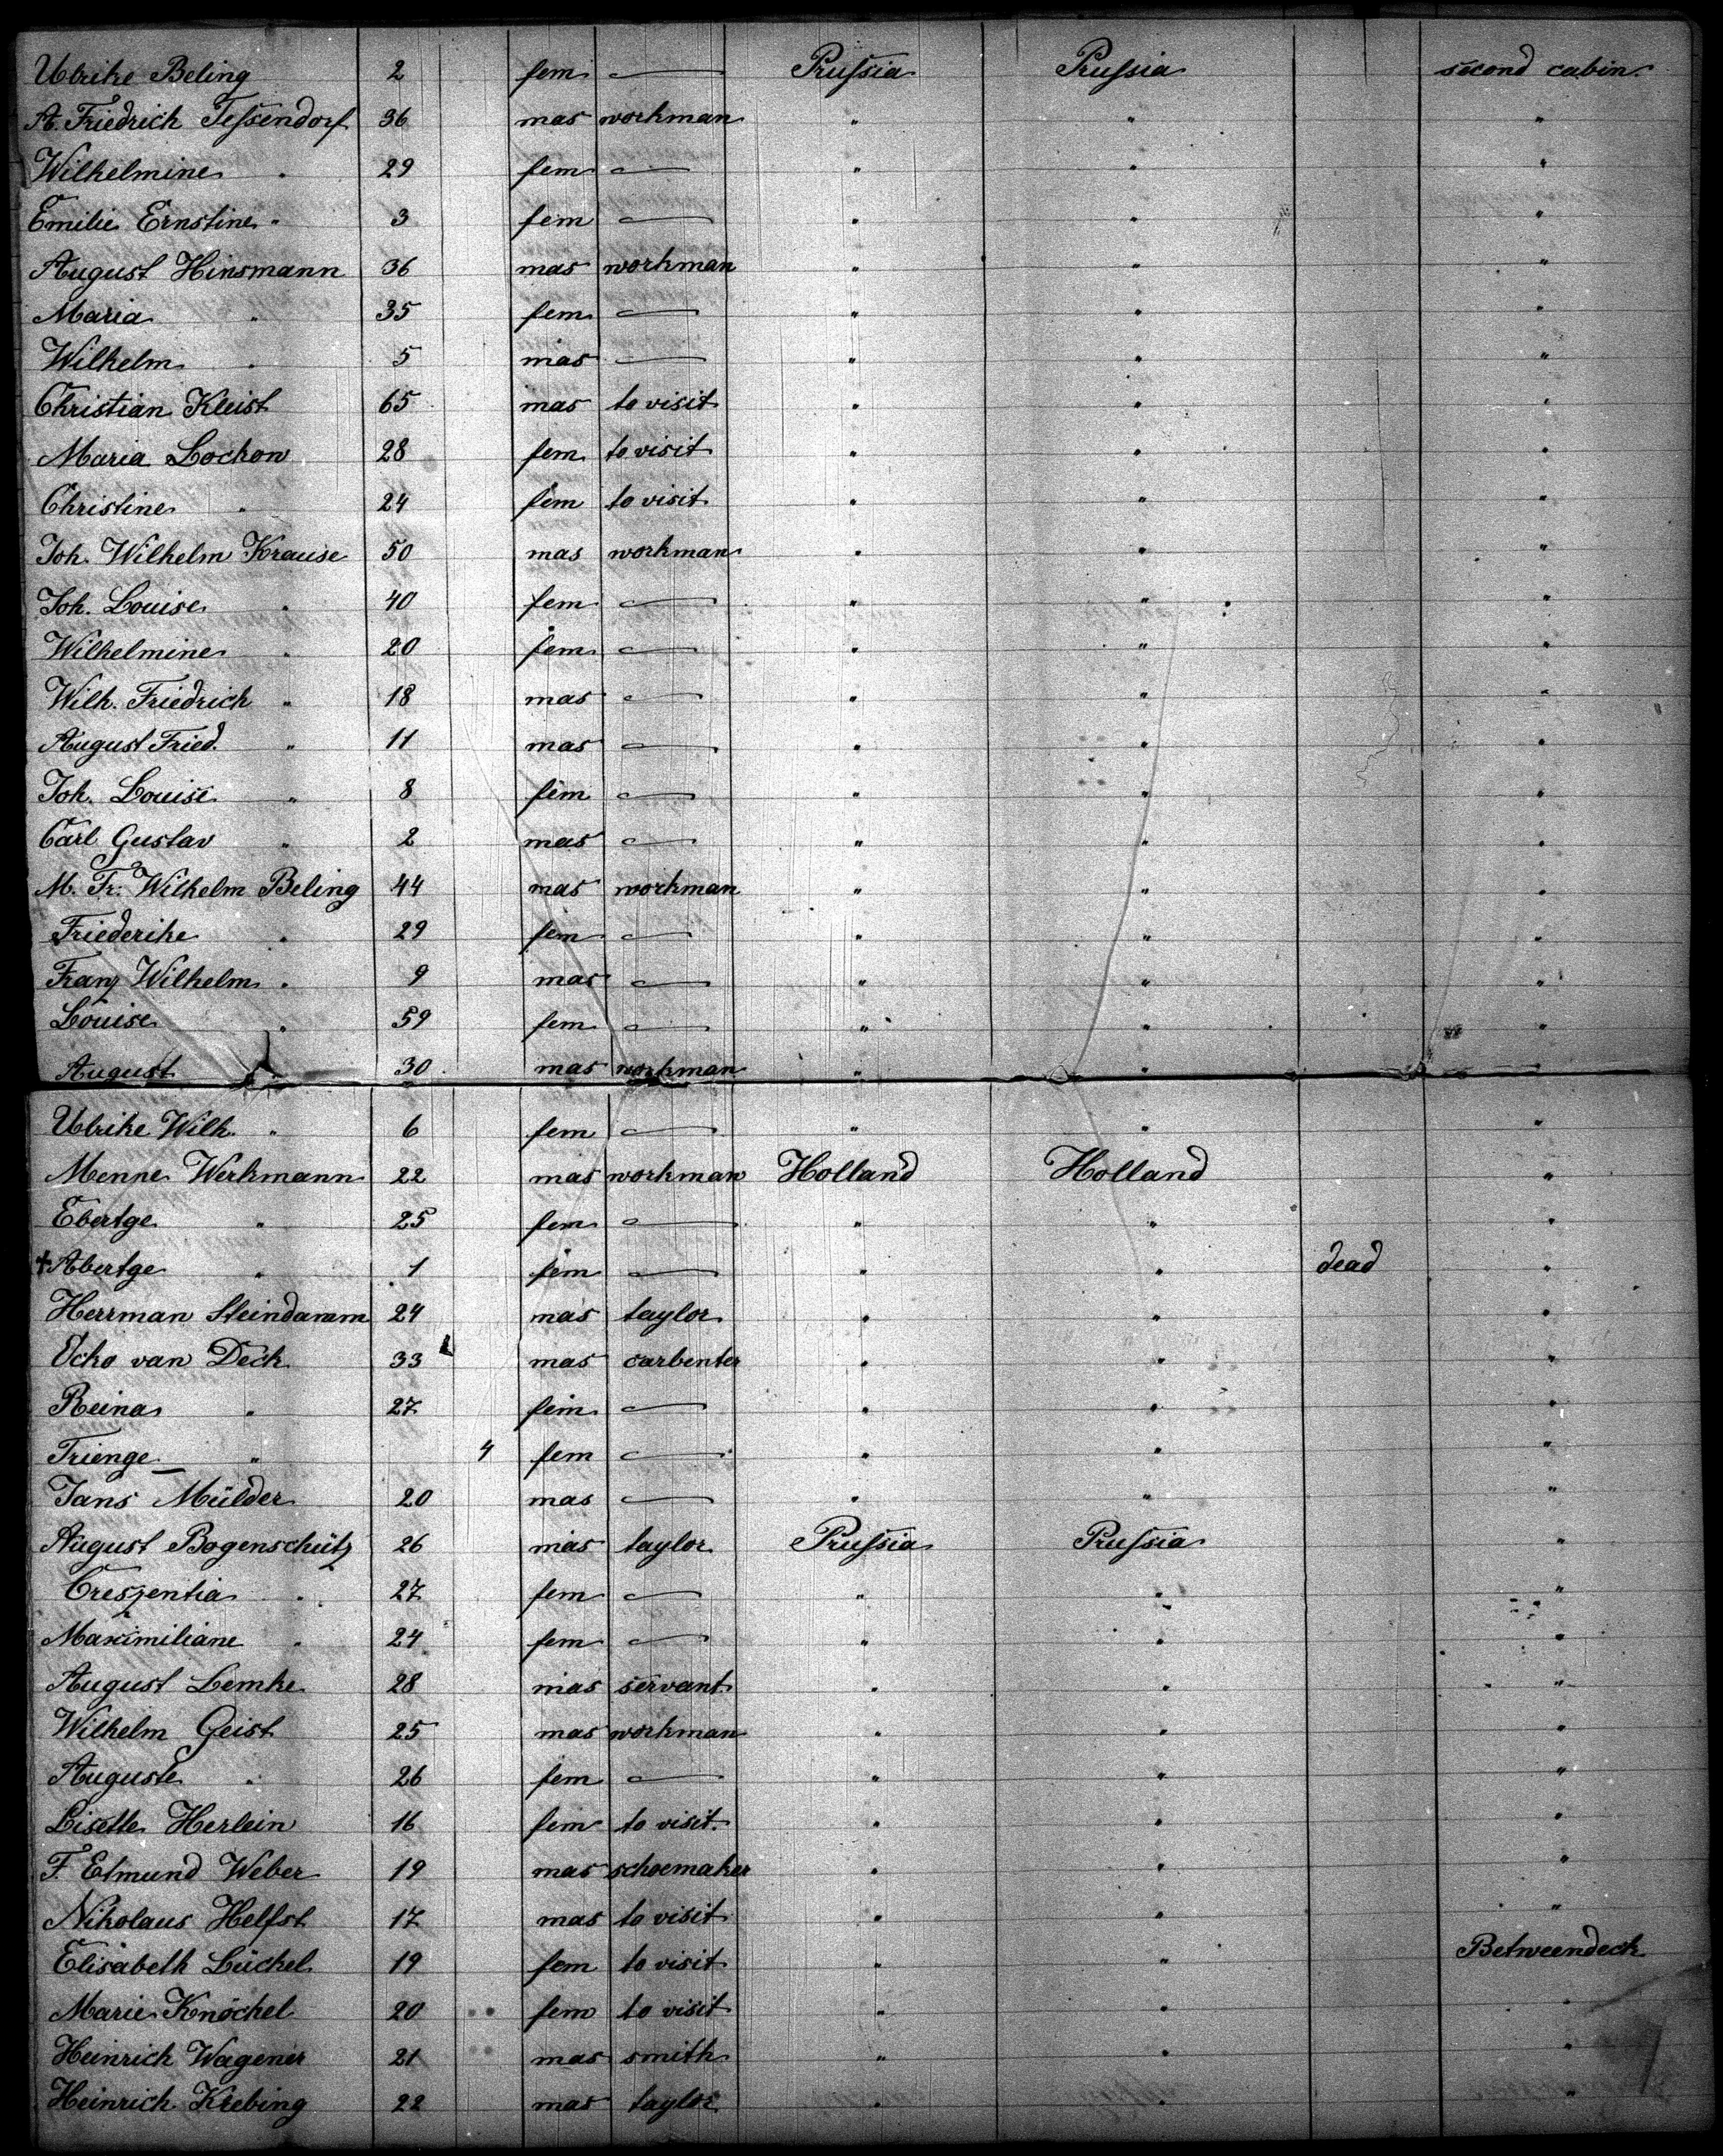 Ulrike Beling 2 fem — Prussia Prussia second cabin.
A. Friedrich Tessendorf 36 mas workman " " "
Wilhelmine " 29 fem — " " "
Emilie Ernstine " 3 fem — " " "
August Hinsmann 36 mas workman " " "
Maria " 35 fem — " " "
Wilhelm " 5 mas — " " "
Christian Kleist 65 mas to visit " " "
Maria Lockow 28 fem to visit " " "
Christine " 24 fem to visit " " "
Joh. Wilhelm Krause 50 mas workman " " "
Joh. Louise " 40 fem — " " "
Wilhelmine " 20 fem — " " "
Wilh. Friedrich " 18 mas — " " "
August Fried. " 11 mas — " " "
Joh. Louise " 8 fem — " " "
Carl Gustav " 2 mas — " " "
M. Fr. Wilhelm Beling 44 mas workman " " "
Friederike " 29 fem — " " "
Franz Wilhelm " 9 mas — " " "
Louise " 59 fem — " " "
August " 30 mas workman " " "
Ulrike Wilh. " 6 fem — " " "
Menne Werkmann 22 mas workman Holland Holland "
Ebertge " 25 fem — " " "
+ Abertge " 1 fem — " " dead "
Herrman Steindamm 24 mas taylor " " "
Ocko van Deck 33 mas carbenter " " "
Reina " 27 fem — " " "
Trienge " 4 fem — " " "
Jans Mülder 20 mas — " " "
August Bogenschütz 26 mas taylor Prussia Prussia "
Creszentia " 27 fem — " " "
Maximiliane " 24 fem — " " "
August Lemke 28 mas servant " " "
Wilhelm Geist 25 mas workman " " "
Auguste " 26 fem — " " "
Lisette Herlein 16 fem to visit " " "
F. Etmund Weber 19 mas schoemaker " " "
Nikolaus Helfst 17 mas to visit " " "
Elisabeth Lückel 19 fem to visit " " Betweendeck
Marie Knöchel 20 fem to visit " " "
Heinrich Wagener 21 mas smith " " "
Heinrich Krebing 22 mas taylor " " "